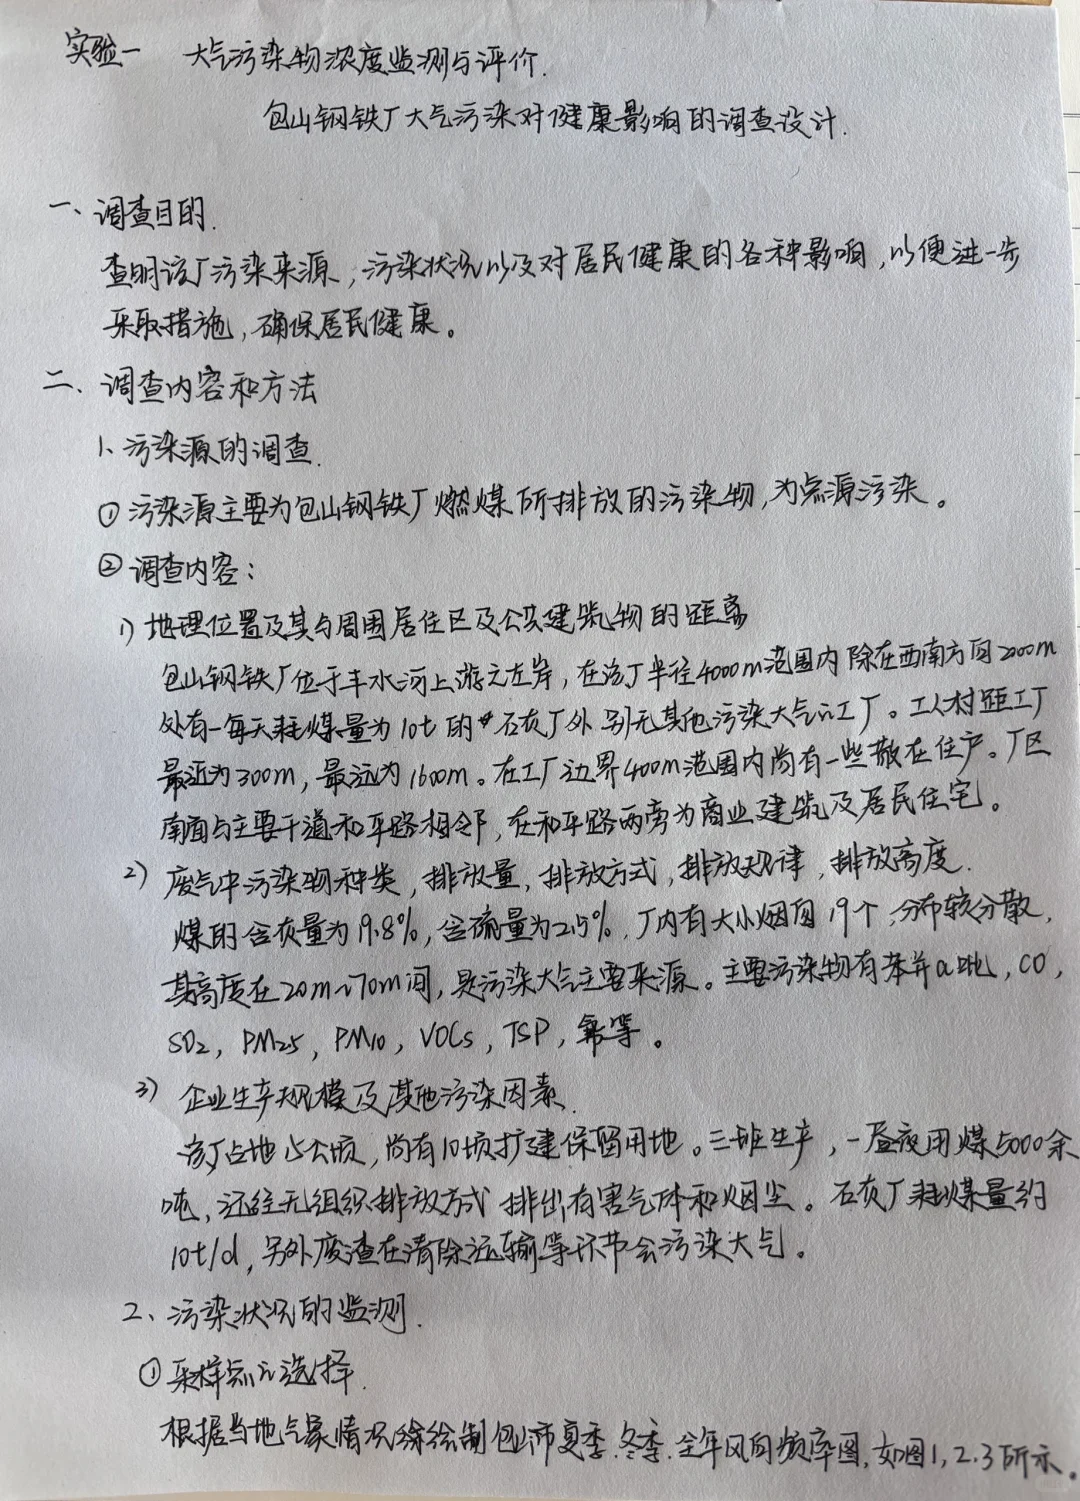 实验一 大气污染物浓度监测与评价.
包山钢铁厂大气污染对健康影响的调查设计.
一、调查目的.
查明该厂污染来源,污染状况以及对居民健康的各种影响,以便进一步
采取措施,确保居民健康。
二、调查内容和方法
1、污染源的调查.
①污染源主要为包山钢铁厂燃煤所排放的污染物,为点源污染。
②调查内容:
1)地理位置及其与周围居住区及公共建筑物的距离
包山钢铁厂位于丰水河上游之左岸,在该厂半径4000m范围内除在西南方向2000m
处有一每天耗煤量为10t的石灰厂外别无其他污染大气的工厂。工人村距工厂
最近为300m,最远为1600m。在工厂边界400m范围内尚有一些散在住户。厂区
南面与主要干道和平路相邻,在和平路两旁为商业建筑及居民住宅。
2)废气中污染物种类,排放量,排放方式,排放规律,排放高度.
煤的含灰量为19.8%,含硫量为2.5%,厂内有大小烟囱19个,分布较分散,
其高度在20m~70m间,是污染大气主要来源。主要污染物有苯并a吡,CO,
SO2,PM2.5,PM10,VOCs,TSP,等。
3)企业生产规模及其他污染因素.
该厂占地15公顷,尚有10顷扩建保留用地。三班生产,一昼夜用煤5000余
吨,还经无组织排放方式排出有害气体和烟尘。石灰厂耗煤量约
10t/d,另外废渣在清除运输等环节会污染大气。
2、污染状况的监测.
①采样点的选择.
根据当地气象情况绘制包山市夏季.冬季.全年风向频率图,如图1,2.3所示。